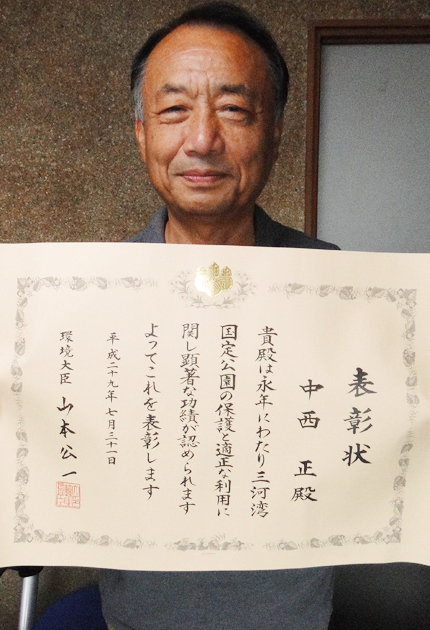 表彰状
中西 正殿
貴殿は永年にわたり三河湾
国定公園の保護と適正な利用に
関し顕著な功績が認められます
よってこれを表彰します
平成二十九年七月三十一日
環境大臣 山本公一